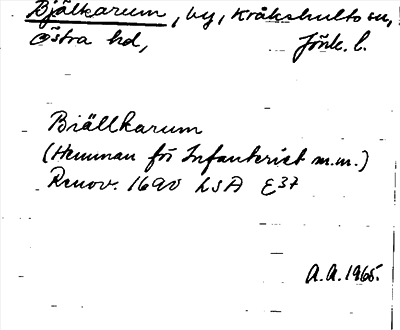 Bjälkarum, by, Kråkshults sn,
Östra hd, Jönk. l.
Biällkarum
(Hemman för Infanterist m.m.)
Renov. 1690 LSA E37
A.A. 1965.